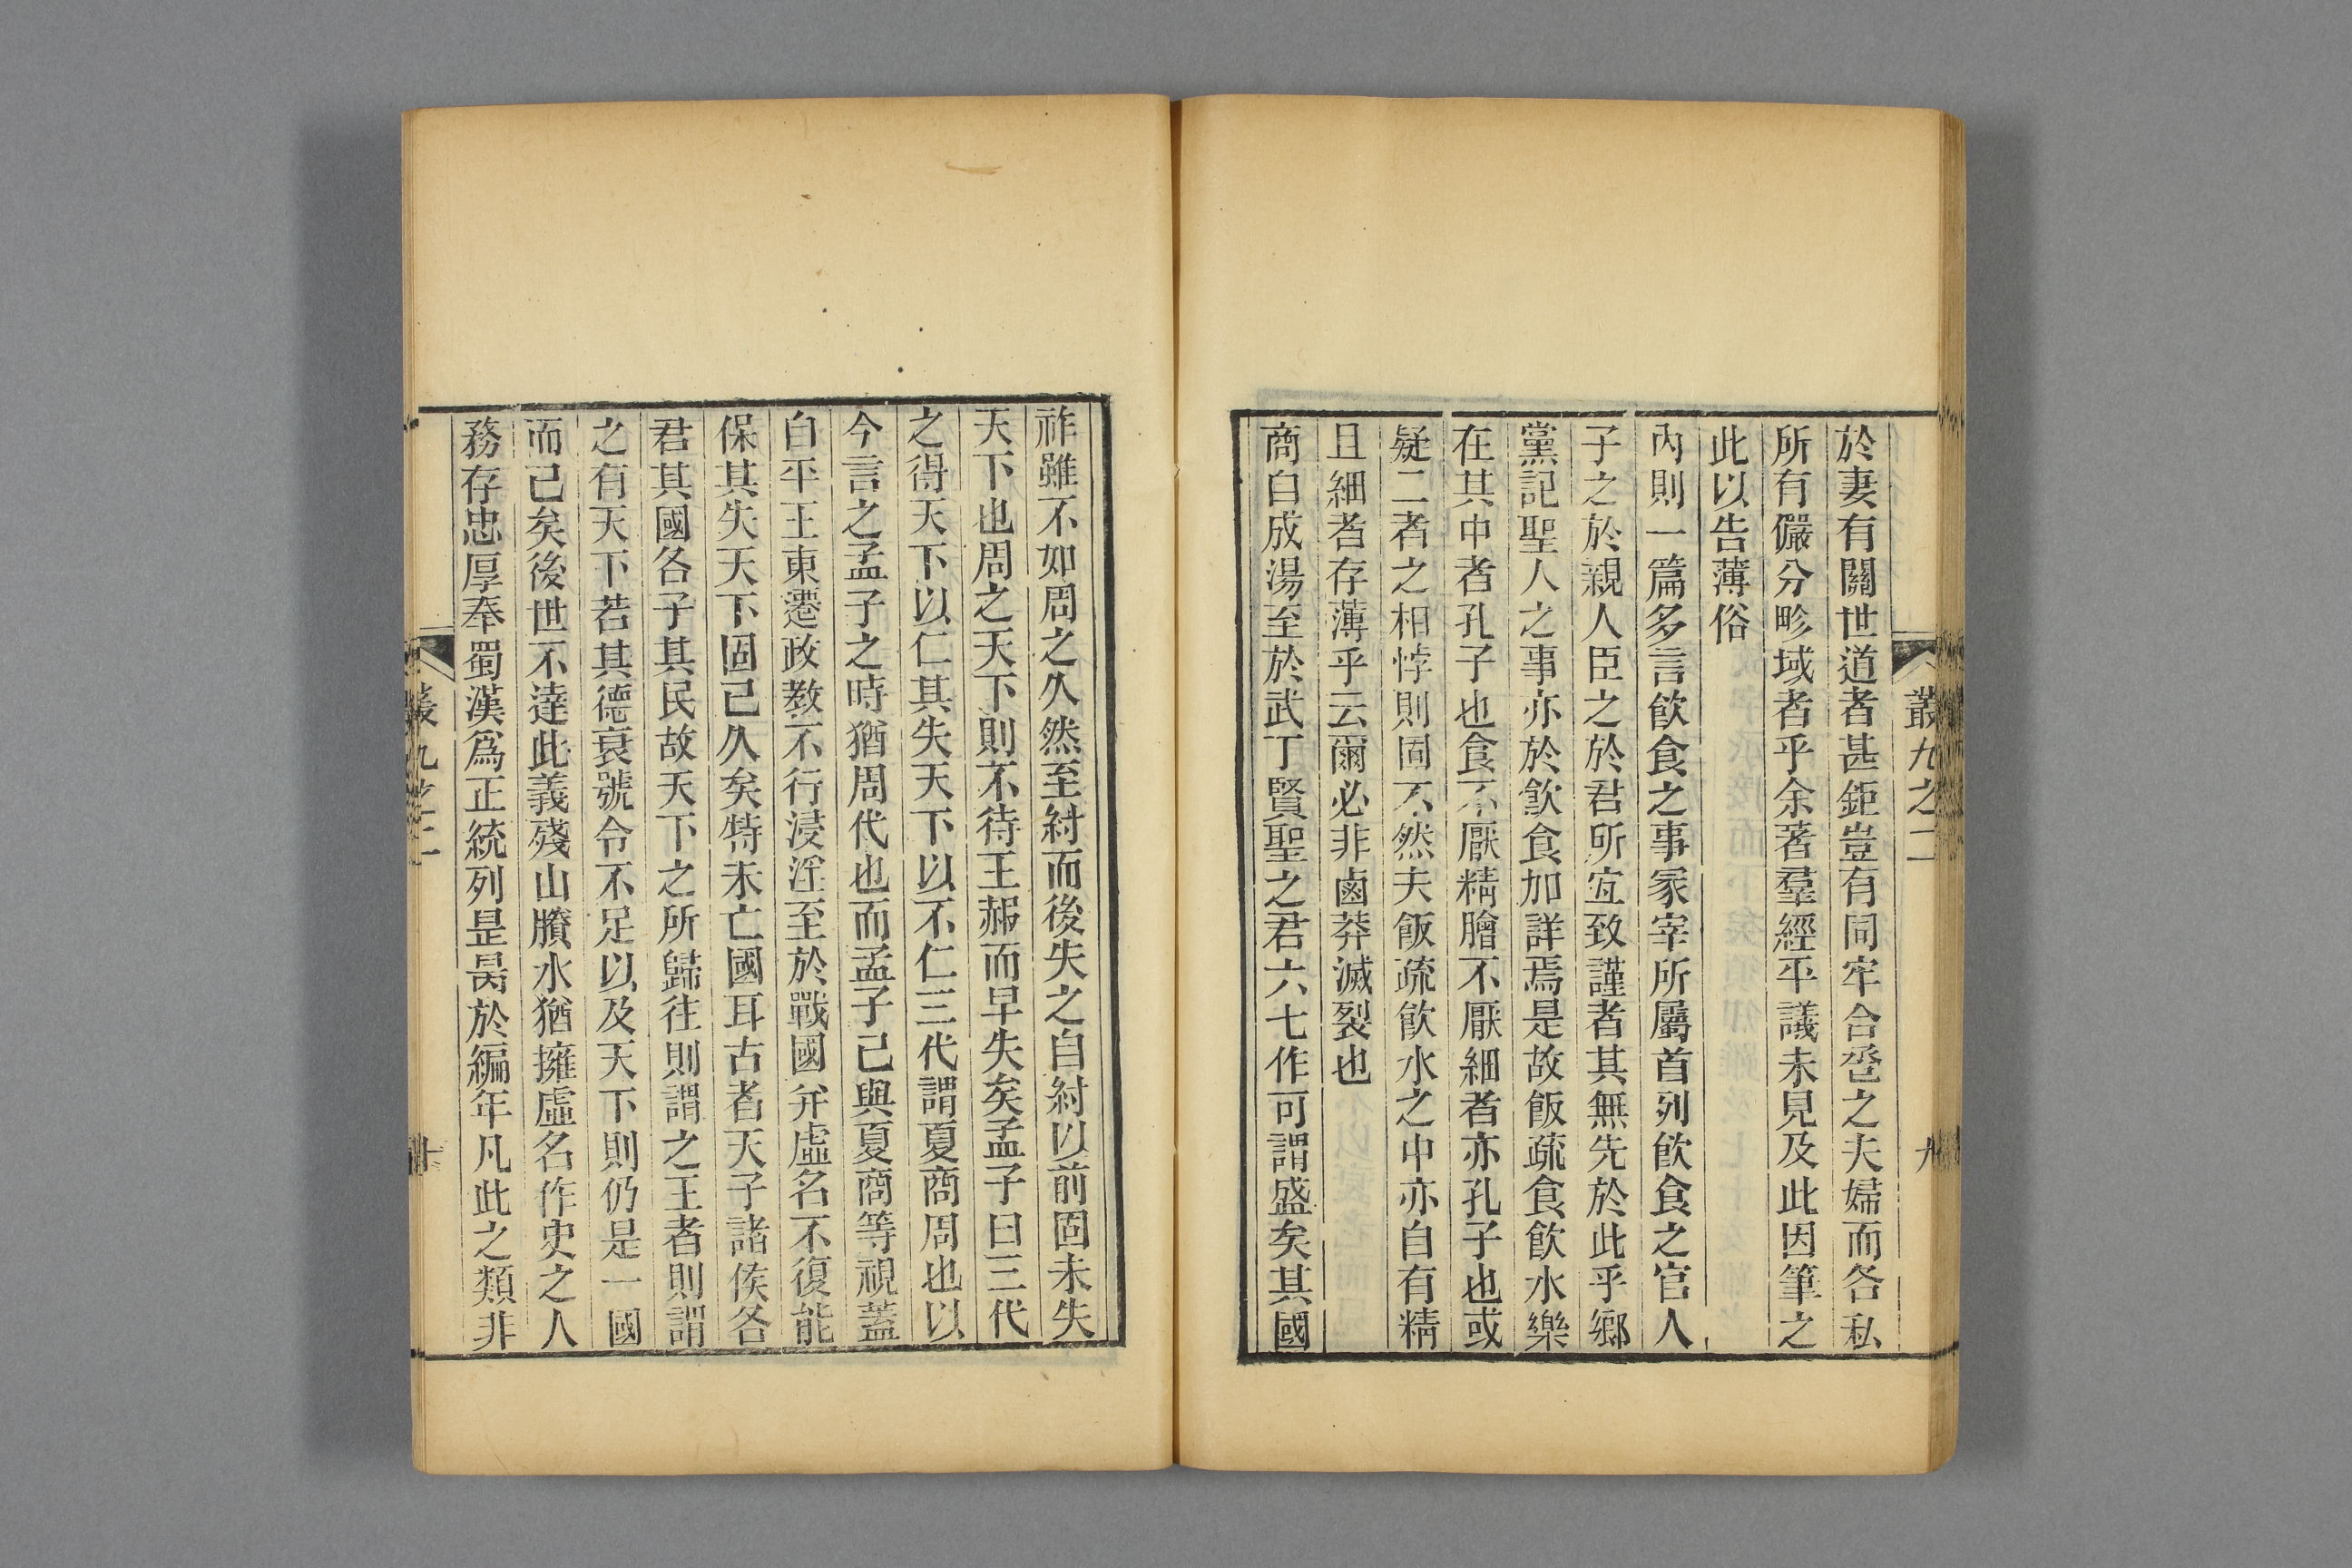 叢九之二
九
於妻有關世道者甚鉅豈有同牢合巹之夫婦而各私
所有儼分畛域者乎余著羣經平議未見及此因筆之
此以告薄俗
內則一篇多言飮食之事冢宰所屬首列飮食之官人
子之於親人臣之於君所宐致謹者其無先於此乎鄉
黨記聖人之事亦於飮食加詳焉是故飯疏食飮水樂
在其中者孔子也食不厭精膾不厭細者亦孔子也或
疑二者之相悖則固不然夫飯疏飮水之中亦自有精
且細者存薄乎云爾必非鹵莽滅裂也
商自成湯至於武丁賢聖之君六七作可謂盛矣其國
祚雖不如周之久然至紂而後失之自紂以前固未失
天下也周之天下則不待王赧而早失矣孟子曰三代
之得天下以仁其失天下以不仁三代謂夏商周也以
今言之孟子之時猶周代也而孟子已與夏商等視蓋
自平王東遷政敎不行浸淫至於戰國弁虛名不復能
保其失天下固已久矣特未亡國耳古者天子諸侯各
君其國各子其民故天下之所歸往則謂之王者則謂
之有天下若其德衰號令不足以及天下則仍是一國
而已矣後世不達此義殘山賸水猶擁虛名作史之人
務存忠厚奉蜀漢爲正統列昰昺於編年凡此之類非
叢九之二
十